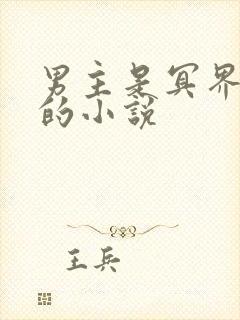 男主是冥界
的小说
王兵